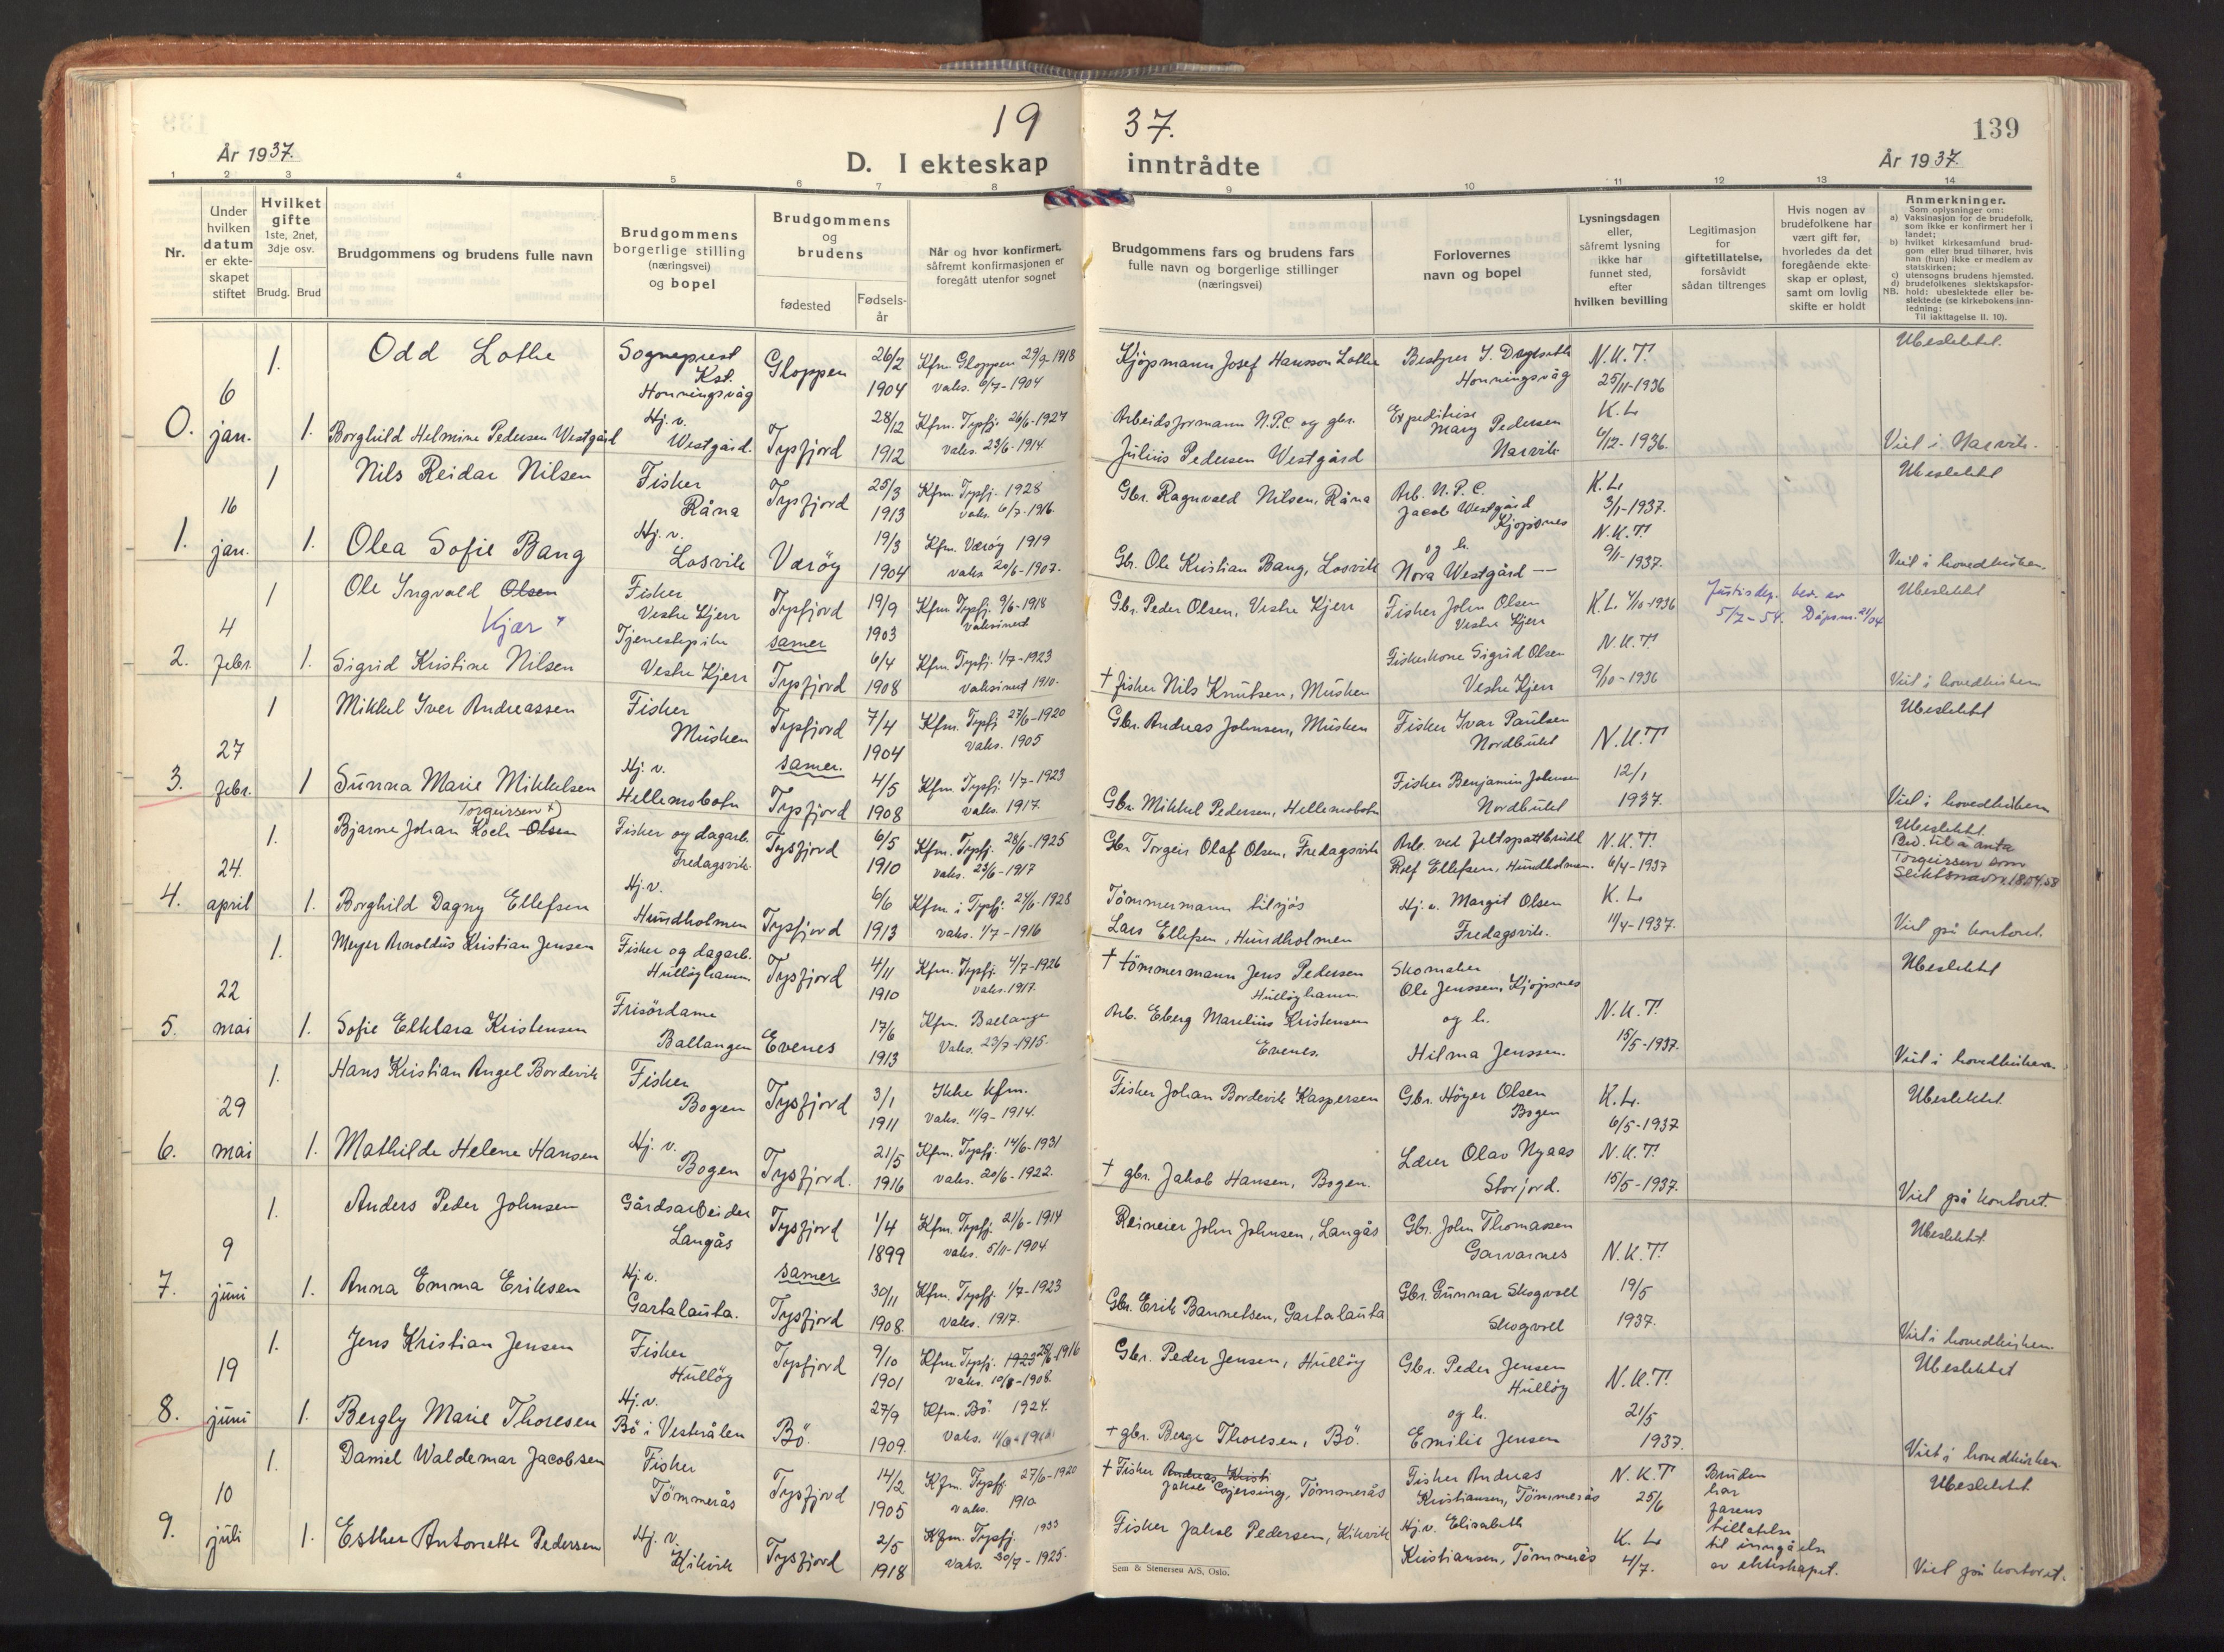 19 37.
139
År 1937.
D. I ekteskap inntrådte
År 1937.
1 2 3 4 5 6 7 8 9 10 11 12 13 14
Nr.
Under hvilken datum er ekteskapet stiftet
Hvilket gifte 1ste, 2net, 3dje osv.
Brudg. Brud
Brudgommens og brudens fulle navn
Brudgommens borgerlige stilling (næringsvei) og bopel
Brudgommens og brudens
fødested
Fødselsår
Når og hvor konfirmert, såfremt konfirmasjonen er foregått utenfor sognet
Brudgommens fars og brudens fars fulle navn og borgerlige stillinger (næringsvei)
Forlovernes navn og bopel
Lysningsdagen eller, såfremt lysning ikke har funnet sted, efter hvilken bevilling
Legitimasjon for giftetillatelse, forsåvidt sådan tiltrenges
Hvis nogen av brudefolkene har vært gift før, hvorledes da det foregående ekteskap er opløst, samt om lovlig skifte er holdt
Anmerkninger.
Som oplysninger om:
a) Vaksinasjon for de brudefolk, som ikke er konfirmert her i landet;
b) hvilket kirkesamfund brudgom eller brud tilhører, hvis han (hun) ikke er medlem av statskirken;
c) utensogns brudens hjemsted.
d) brudefolkenes slektskapsforhold: ubeslektede eller beslektede (se kirkebokens innledning:
NB.
Til iakttagelse II. 10).
0. 6 jan.
1. Odd Lothe Sogneprest Kst. Honningsvåg Gloppen 26/2 1904 Kfm. Gloppen 29/9-1918 vaks. 6/7-1904 Kjøpmann Josef Hansson Lothe Honningsvåg N.K.T. 25/11-1936 Ubeslektet.
1. Borghild Helmine Pedersen Westgård Hj. v. Westgård. Tysfjord 28/12 1912 Kfm. Tysfj. 26/6-1927 vaks. 23/6-1914 Arbeidsformann N.P.C. og gbr. Julius Pedersen Westgård Mary Pedersen Narvik K.L. 6/12-1936. Viet i Narvik.
1. 16 jan.
1 Nils Reidar Nilsen Fisher Råna Tysfjord 25/3 1913 Kfm. Tysfj. 1928 vaks. 6/7-1916 Gbr. Ragnvald Nilsen, Råna Arb. N.P.C. Jacob Westgård Kjøpsnes K.L. 3/1-1937. Ubeslektet
1. Olea Sofie Bang Hj. v. Losvik Værøy 19/3 1904 Kfm. Værøy 1919 vaks 20/6-1907. Gbr. Ole Kristian Bang, Losvik og h. Nora Westgård — N.K.T. 9/1-1937. Viet i hovedkirken.
2. 4 febr.
1 Ole Ingvald Olsen Kjær " Fisker Vestre Kjerr Tysfjord 19/9 1903 Kfm. Tysfj. 9/6-1918 vaksinert Gbr. Peder Olsen, Vestre Kjerr Fisker John Olsen Vestre Kjerr K.L. 4/10-1936 Justisdep. bev. av 5/7-54. Ubeslektet
samer
1. Sigrid Kristine Nilsen Tjenestepike Vestre Kjerr Tysfjord 6/4 1908 Kfm. Tysfj. 1/7-1923 vaksinert 1910. † fisker Nils Knutsen, Musken Fiskerkone Sigrid Olsen Vestre Kjerr N.K.T. 9/10-1936 Viet i hovedkirken
3. 27 febr.
1 Mikkel Iver Andreassen Fisher Musken Tysfjord 7/4 1904 Kfm. Tysfj 27/6-1920 vaks. 1905 Gbr. Andreas Johnsen, Musken Fisker Ivar Paulsen Nordbukt N.K.T Ubeslektet
samer.
1 Sunna Marie Mikkelsen Hj. v. Hellemobotn Tysfjord 4/5 1908 Kfm. Tysfj. 1/7-1923 vaks. 1917. Gbr. Mikkel Pedersen, Hellemobotn Fisker Benjamin Johnsen Nordbukt 12/1 1937. Viet i hovedkirken
4. 24. april
1. Bjarne Johan Koch Olsen Torgeirsen x) Fisker og dagarb. Fredagsvik Tysfjord 6/5 1910 Kfm. Tysfj. 28/6-1925 vaks. 23/6-1917 Gbr Torgeir Olaf Olsen, Fredagsvik Arb. ved feltspattbrudd Rolf Ellefsen, Hundholmen. N.K.T. 6/4-1937 Ubeslektet. Bev. til å anta Torgeirsen som slektsnavn 18.04.58
1. Borghild Dagny Ellefsen Hj.v. Hundholmen Tysfjord 6/6 1913 Kfm i Tysfj. 24/6-1928 vaks. 1/7-1916 Tömmermann tilsjøs Lars Ellefsen, Hundholmen Hj. v. Margit Olsen Fredagsvik. K.L. 11/4-1937. Viet på kontoret.
5. 22 mai
1. Meyer Arnoldus Kristian Jensen Fisker og dagarb. Hulløyhamn Tysfjord 4/11 1910 Kfm. Tysfj. 4/7-1926 vaks. 1917. † tömmermann Jens Pedersen Hulløyhamn. Skomaker Ole Jenssen, Kjøpsnes Ubeslektet
1. Sofie Elklara Kristensen Frisördame Ballangen Evenes 17/6 1913 Kfm. Ballangen Vaks. 23/7-1915. Arb. Eberg Marelius Kristensen Evenes. og h. Hilma Jenssen. N.K.T. 15/5-1937. Viet i hovedkirken
6. 29 mai
1. Hans Kristian Angel Bordevik Fisker Bogen Tysfjord 3/1 1911 Ikke kfm. Vaks. 11/9-1914. Fisker Johan Bordevik Kaspersen Gbr. Höyer Olsen Bogen K.L. 6/5-1937 Ubeslektet.
1. Mathilde Helene Hansen Hj. v. Bogen Tysfjord. 21/5 1916 Kfm. Tysfj. 14/6-1931 vaks. 20/6-1922. † gbr. Jakob Hansen, Bogen. Lærer Olav Nyaas Storjord. N.K.T. 15/5-1937. Viet på kontoret.
7. 9 juni
1. Anders Peder Johnsen Gårdsarbeider Langås Tysfjord 1/4 1899 Kfm. Tysfj. 21/6-1914 vaks. 5/11-1904 Reineier John Johnsen, Langås Gbr. John Thomassen Garvarnes N.K.T. Ubeslektet.
samer
1. Anna Emma Eriksen Hj. v. Gartalauta. Tysfjord 30/11 1908 Kfm. Tysfj. 1/7-1923 vaks. 1917. Gbr. Erik Bannetsen, Gartalauta Gbr. Gunnar Skogvoll Skogvoll 19/5 1937. Viet i hovedkirken
8. 19 juni
1. Jens Kristian Jensen Fisker Hulløy Tysfjord 9/10 1901 Kfm. Tysfj. 1923 25/6-1916 vaks. 10/8-1908. Gbr. Peder Jensen, Hulløy Gbr. Peder Jensen Hulløy N.K.T. Ubeslektet
1. Bergly Marie Thoresen Hj. v. Bö i Vesterålen Bö. 27/9 1909. Kfm. Bö. 1924. † gbr. Berge Thoresen, Bö. og h. Emilie Jensen 21/5 1937. Viet i hovedkirken
9. 10 juli
1. Daniel Waldemar Jacobsen Fisker Tömmerås Tysfjord 14/2 1905 Kfm. Tysfj. 27/6-1920 vaks. 1910 † Fisker Andreas Kristi Jakob Tömmerås Fisker Andreas Kristiansen, Tömmerås N.K.T 25/6 Bruden har farens tillatelse til inngåelse av ekteskapet. Ubeslektet
1. Esther Antonette Pedersen Hj. v. Kikvik Tysfjord 2/5 1918 Kfm. Tysfj. 1933 vaks. 30/7-1925. Fisker Jakob Pedersen, Kikvik Hj. v. Elisabeth Kristiansen, Tömmerås K.L 4/7. Viet på kontoret.
Sem & Stenersen A/S, Oslo.